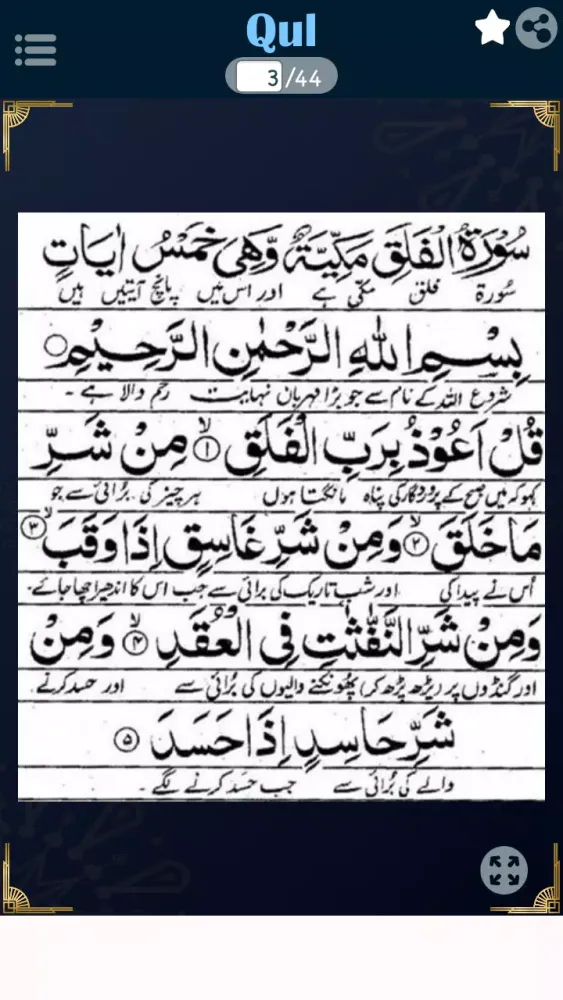 Qul
3/44
سُوْرَةُ الْفَلَقِ مَكِّيَّةٌ وَّهِيَ خَمْسُ اٰيَاتٍ
سُورۃ فلق مکّی ہے اور اس میں پانچ آیتیں ہیں
بِسْمِ اللهِ الرَّحْمٰنِ الرَّحِيْمِ ○
شروع اللہ کے نام سے جو بڑا مہربان نہایت رحم والا ہے ۔
قُلْ اَعُوْذُ بِرَبِّ الْفَلَقِ ۙ﴿۱﴾ مِنْ شَرِّ
کہو کہ میں صبح کے پروردگار کی پناہ مانگتا ہوں ہر چیز کی بُرائی سے جو
مَا خَلَقَ ۙ﴿۲﴾ وَمِنْ شَرِّ غَاسِقٍ اِذَا وَقَبَ ۙ﴿۳﴾
اُس نے پیدا کی اور شب تاریک کی برائی سے جب اس کا اندھیرا چھا جائے۔
وَمِنْ شَرِّ النَّفّٰثٰتِ فِي الْعُقَدِ ۙ﴿۴﴾ وَمِنْ
اور گنڈوں پر (پڑھ پڑھ کر) پھونکنے والیوں کی بُرائی سے اور حسد کرنے
شَرِّ حَاسِدٍ اِذَا حَسَدَ ﴿۵﴾
والے کی بُرائی سے جب حسد کرنے لگے ۔